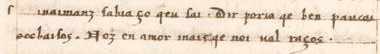 s maimanz sabia ço qeu sai. Dir poria qe ben paucas
occhaisos. Noz en amor mais qe noi val raços.